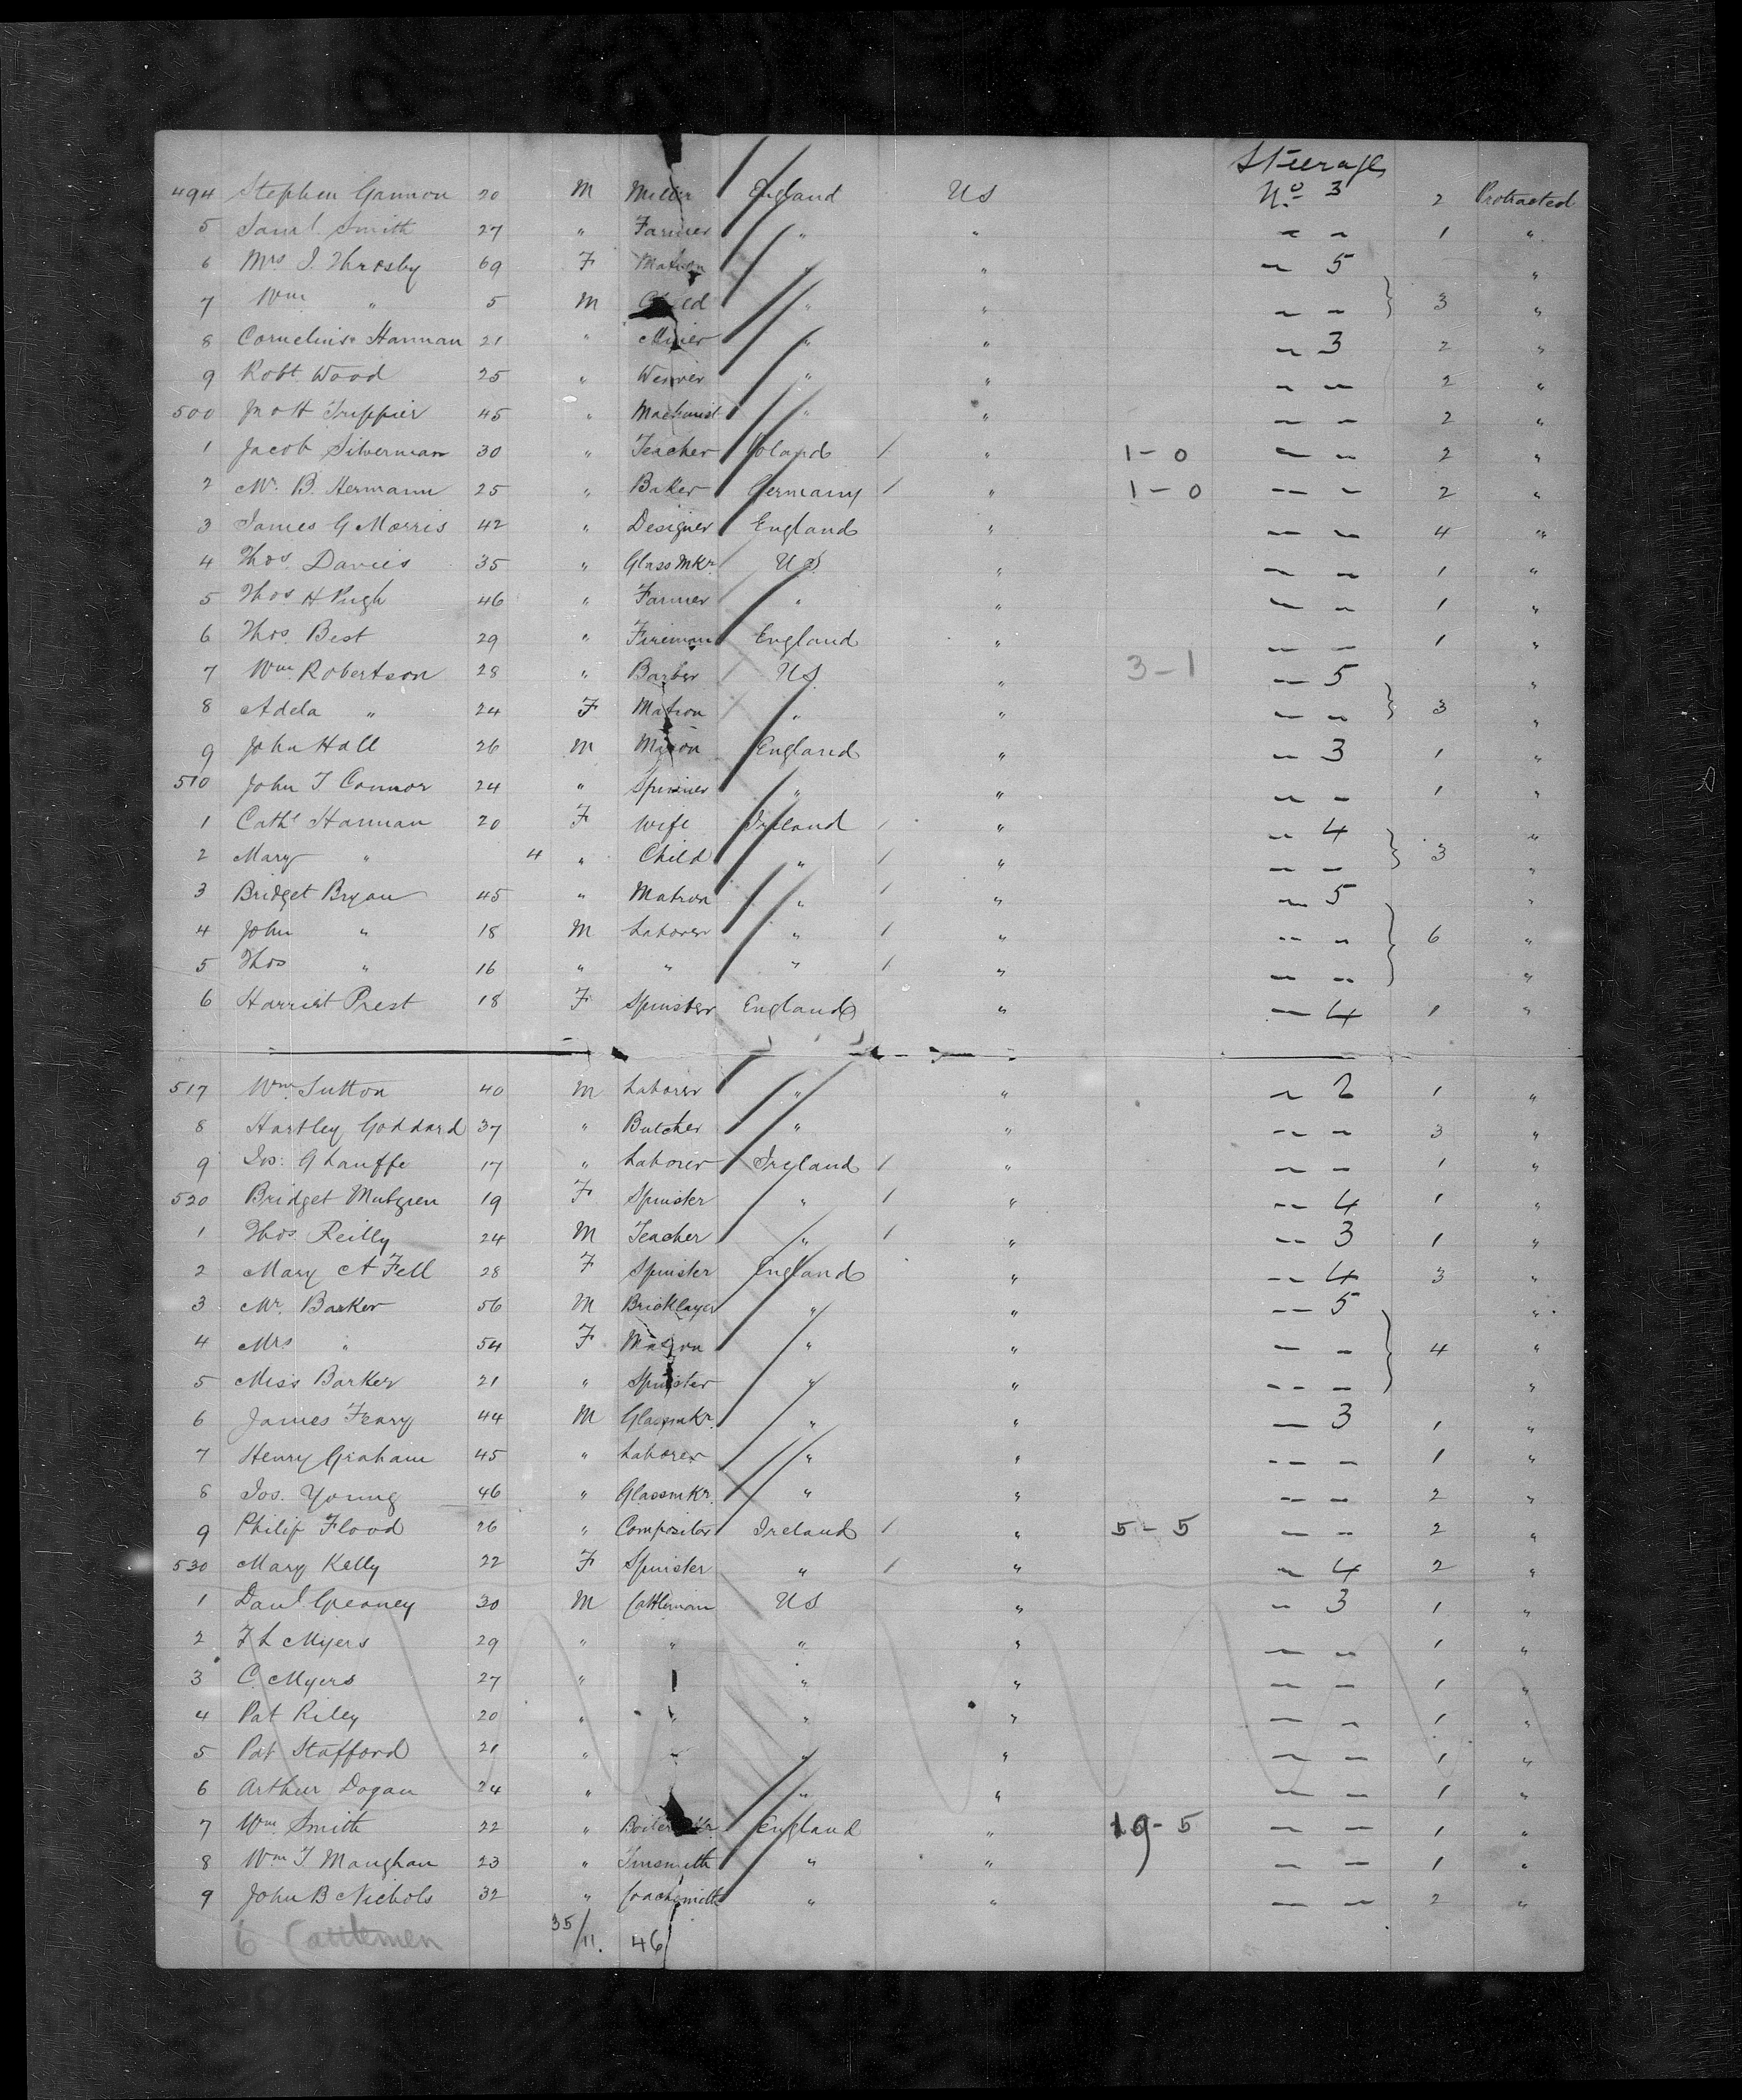 Steerage
494 Stephen Gannon 20 M Miller England US No 3 2 Protracted
5 Saml Smith 27 " Farmer " " — — 1 "
6 Mrs J. Throsby 69 F Matron " " — 5 "
7 Wm " 5 M Child " " — — 3 "
8 Cornelius Hannan 21 " Miner " " — 3 2 "
9 Robt Wood 25 " Weaver " " — — 2 "
500 Jno H Trippier 45 " Machinist " " — — 2 "
1 Jacob Silverman 30 " Teacher Poland / " 1-0 — — 2 "
2 Mr. B. Hermann 25 " Baker Germany / " 1-0 — — 2 "
3 James G Morris 42 " Designer England " — — 4 "
4 Thos. Davies 35 " Glass Mkr. US " — — 1 "
5 Thos H Pugh 46 " Farmer " " — — 1 "
6 Thos. Best 29 " Fireman England " — — 1 "
7 Wm Robertson 28 " Barber US " 3-1 — 5 "
8 Adela " 24 F Matron " " — — 3 "
9 John Hall 26 M Mason England " — 3 1 "
510 John T Connor 24 " Spinner " " — — 1 "
1 Cathe Hannan 20 F Wife Ireland / " — 4 "
2 Mary " 4 " Child " / " — — 3 "
3 Bridget Bryan 45 " Matron " / " — 5 "
4 John " 18 M Laborer " / " — — 6 "
5 Thos " 16 " " " / " — — "
6 Harriet Prest 18 F Spinster England " — 4 1 "
517 Wm Sutton 40 M Laborer " " — 2 1 "
8 Hartley Goddard 37 " Butcher " " — — 3 "
9 Jos. G 17 " Laborer Ireland / " — — 1 "
520 Bridget Mulgren 19 F Spinster " / " — 4 1 "
1 Thos Reilly 24 M Teacher " / " — 3 1 "
2 Mary A Fell 28 F Spinster England " — 4 3 "
3 Mr. Barker 56 M Bricklayer " " — 5 "
4 Mrs " 54 F Matron " " — — 4 "
5 Miss Barker 21 " Spinster " " — — "
6 James Feary 44 M Glassmkr. " " — 3 1 "
7 Henry Graham 45 " Laborer " " — — 1 "
8 Jos. Young 46 " Glassmkr. " " — — 2 "
9 Philip Flood 26 " Compositor Ireland / " 5-5 — — 2 "
530 Mary Kelly 22 F Spinster " / " — 4 2 "
1 Danl Geaney 30 M Cattleman US " — 3 1 "
2 F L Myers 29 " " " " — — 1 "
3 C. Myers 27 " " " — — 1 "
4 Pat Riley 20 " " " " — — 1 "
5 Pat Stafford 21 " " " " — — 1 "
6 Arthur Dogan 24 " " " — — 1 "
7 Wm. Smith 22 " Boiler Mkr. England " 19-5 — — 1 "
8 Wm T Maughan 23 " Tinsmith " " — — 1 "
9 John B Nichols 32 " Coachsmith " " — — 2 "
6 Cattlemen 35/11. 46